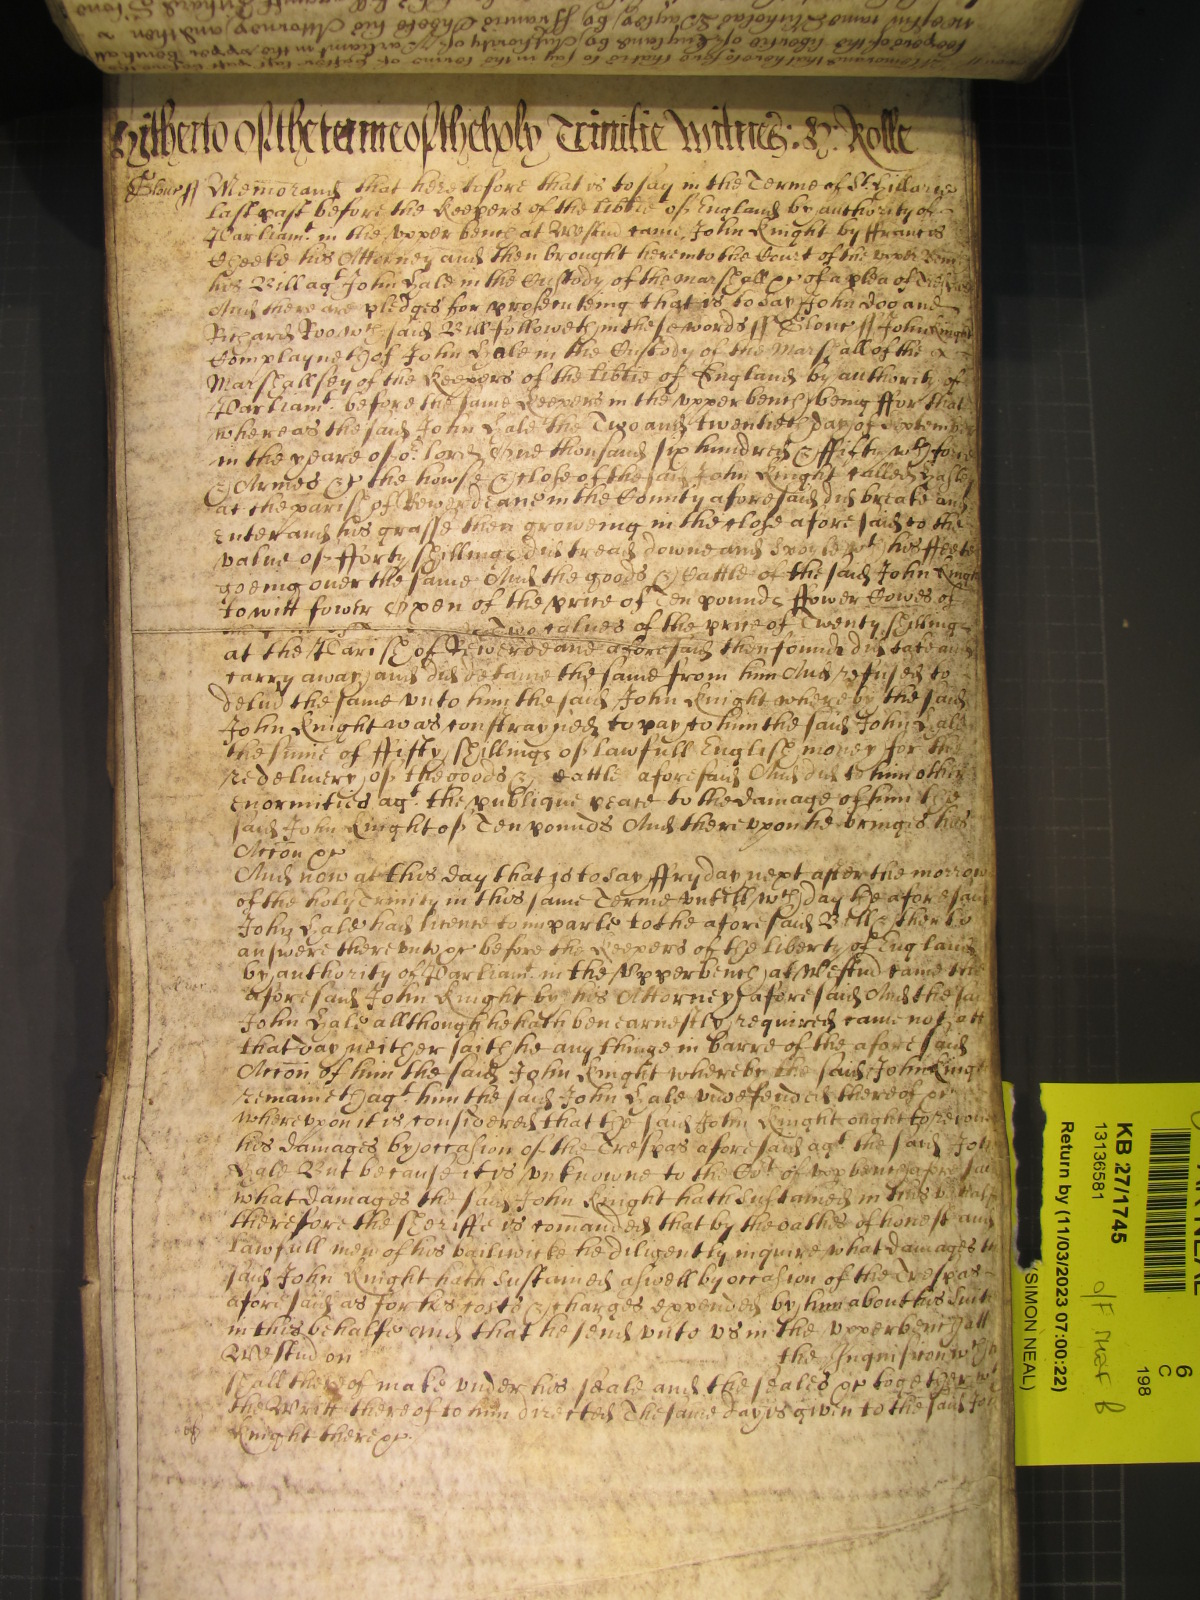 Hitherto of the terme of the holy Trinitie Witnes: H: Rolle
Glouc ss Memorand that heretofore that is to say in the Terme of St Hillarie
last past before the Keepers of the libtie of England by authority of
Parliamt in the upper bench at Westmr came John Knight by ffrancis
Cheeke his Attorney and then brought here into the Court of the upper Bench
his Bill agt John Hale in the Custody of the marshall &c of a plea of Trespas
And there are pledges for prosecuteing that is to say John Doo and
Richard Roo wch said Bill followeth in these words ss Glouc ss John Knight
Complayneth of John Hale in the Custody of the Marshall of the
Marshallsey of the Keepers of the libtie of England by authority of
Parliamt before the same Keepers in the upper bench being ffor that
whereas the said John Hale the Two and twentieth day of Septemb
in the yeare of or lord One thousand six hundred & ffifty wth force
& Armes &c the howse & close of the said John Knight called
at the parish of Newerdeane in the County aforesaid did breake and
enter and his grasse then groweing in the close aforesaid to the
value of fforty shillings did tread downe and spoyle wth his ffeete
goeing over the same And the goods & Cattle of the said John Knight
to witt fower Oxen of the price of Ten pounds ffower Cowes of
Two calves of the price of Twenty shillings
at the Parish of Newerdeane aforesaid then found did take and
carry away and did detaine the same from him And refused to
delivd the same unto him the said John Knight whereby the said
John Knight was constrayned to pay to him the said John Hale
the sume of ffifty shillings of lawfull English money for the
redelivery of the goods & cattle aforesaid And did to him other
enormities agt the publique peace to the damage of him the
said John Knight of Ten pounds And thereupon he bringes his
Accon &c
And now at this day that is to say ffryday next after the morrow
of the holy Trinity in this same Terme untill wch day the aforesaid
John Hale had licence to imparle to the aforesaid Bill & then to
answere thereunto &c before the Keepers of the liberty of England
by authority of Parliamt in the Upper bench at Westmr came the
aforesaid John Knight by his Attorney aforesaid And the said
John Hale allthough he hath ben earnestly required came not att
that day neither saith he any thinge in barre of the aforesaid
Accon of him the said John Knight whereby the said John Knight
remaineth agt him the said John Hale undefended thereof &c
whereupon it is considered that the said John Knight ought to recover
his damages by occasion of the Trespas aforesaid agt the said John
Hale But because it is unknowne to the Cort of upp bench aforesaid
what damages the said John Knight hath Sustained in this behalf
therefore the sheriffe is comanded that by the oathes of honest and
lawfull men of his bailiwicke he diligently inquire what damages the
said John Knight hath Sustained aswell by occasion of the Trespas
aforesaid as for his costs & charges expended by him about his Suite
in this behalfe And that he send unto us in the upper bench att
Westmr on the Inquisicon wch he
shall thereof make under his seale and the seales &c together wth
the Writt thereof to him directed The same day is given to the said John
Knight there &c
KB 27/1745
13136581
Return by (11/03/2023 07:00:22)
(SIMON NEAL)
6
C
198